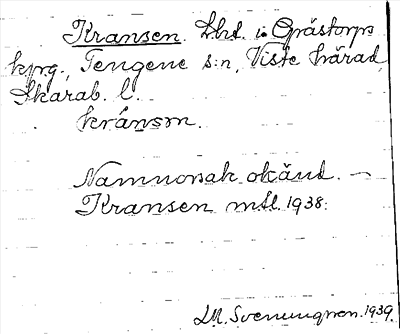 Kransen. Lht. i Grästorps
kprg., Tengene s:n, Viste härad,
Skarab. l.
kránsm.
Namnorsak okänd. —
Kransen mtl. 1938.
L.M. Svenungsson. 1939.